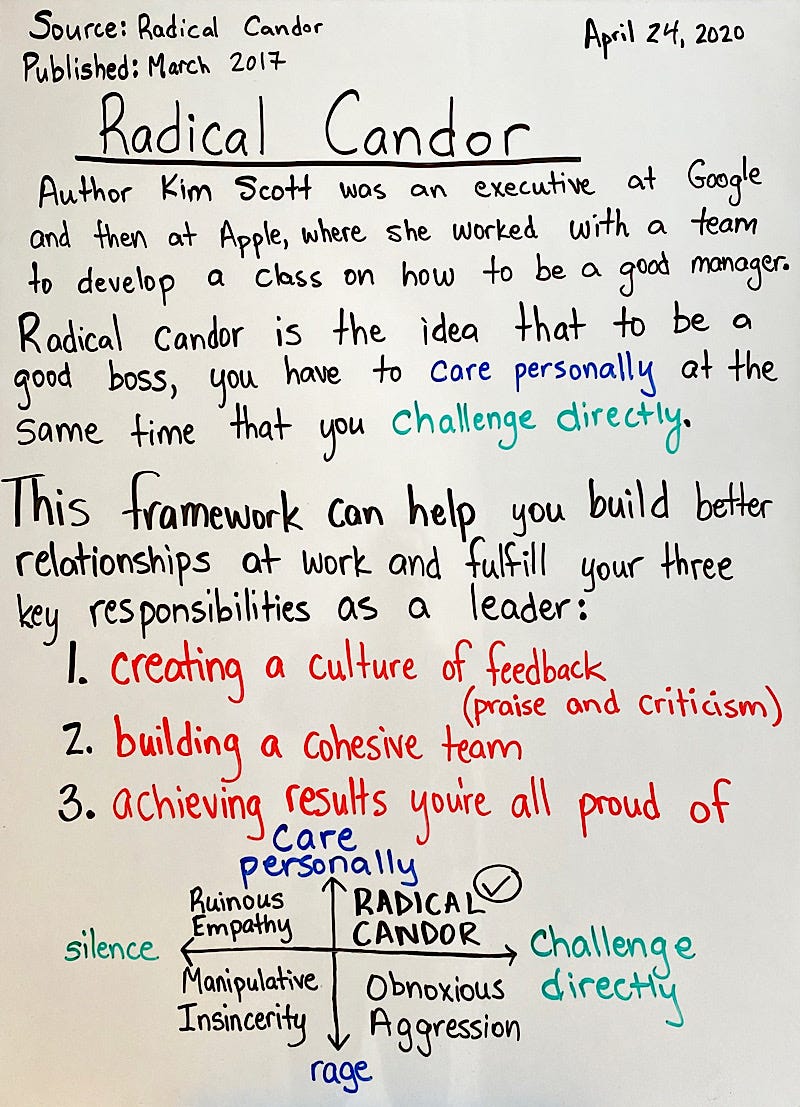 Source: Radical Candor
April 24, 2020
Published: March 2017
Radical Candor
Author Kim Scott was an executive at Google
and then at Apple, where she worked with a team
to develop a class on how to be a good manager.
Radical Candor is the idea that to be a
good boss, you have to care personally at the
same time that you challenge directly.
This framework can help you build better
relationships at work and fulfill your three
key responsibilities as a leader:
1. creating a culture of feedback
(praise and criticism)
2. building a cohesive team
3. achieving results you're all proud of
care
personally
Ruinous
Empathy
RADICAL
CANDOR
silence
Challenge
directly
Manipulative
Insincerity
Obnoxious
Aggression
rage